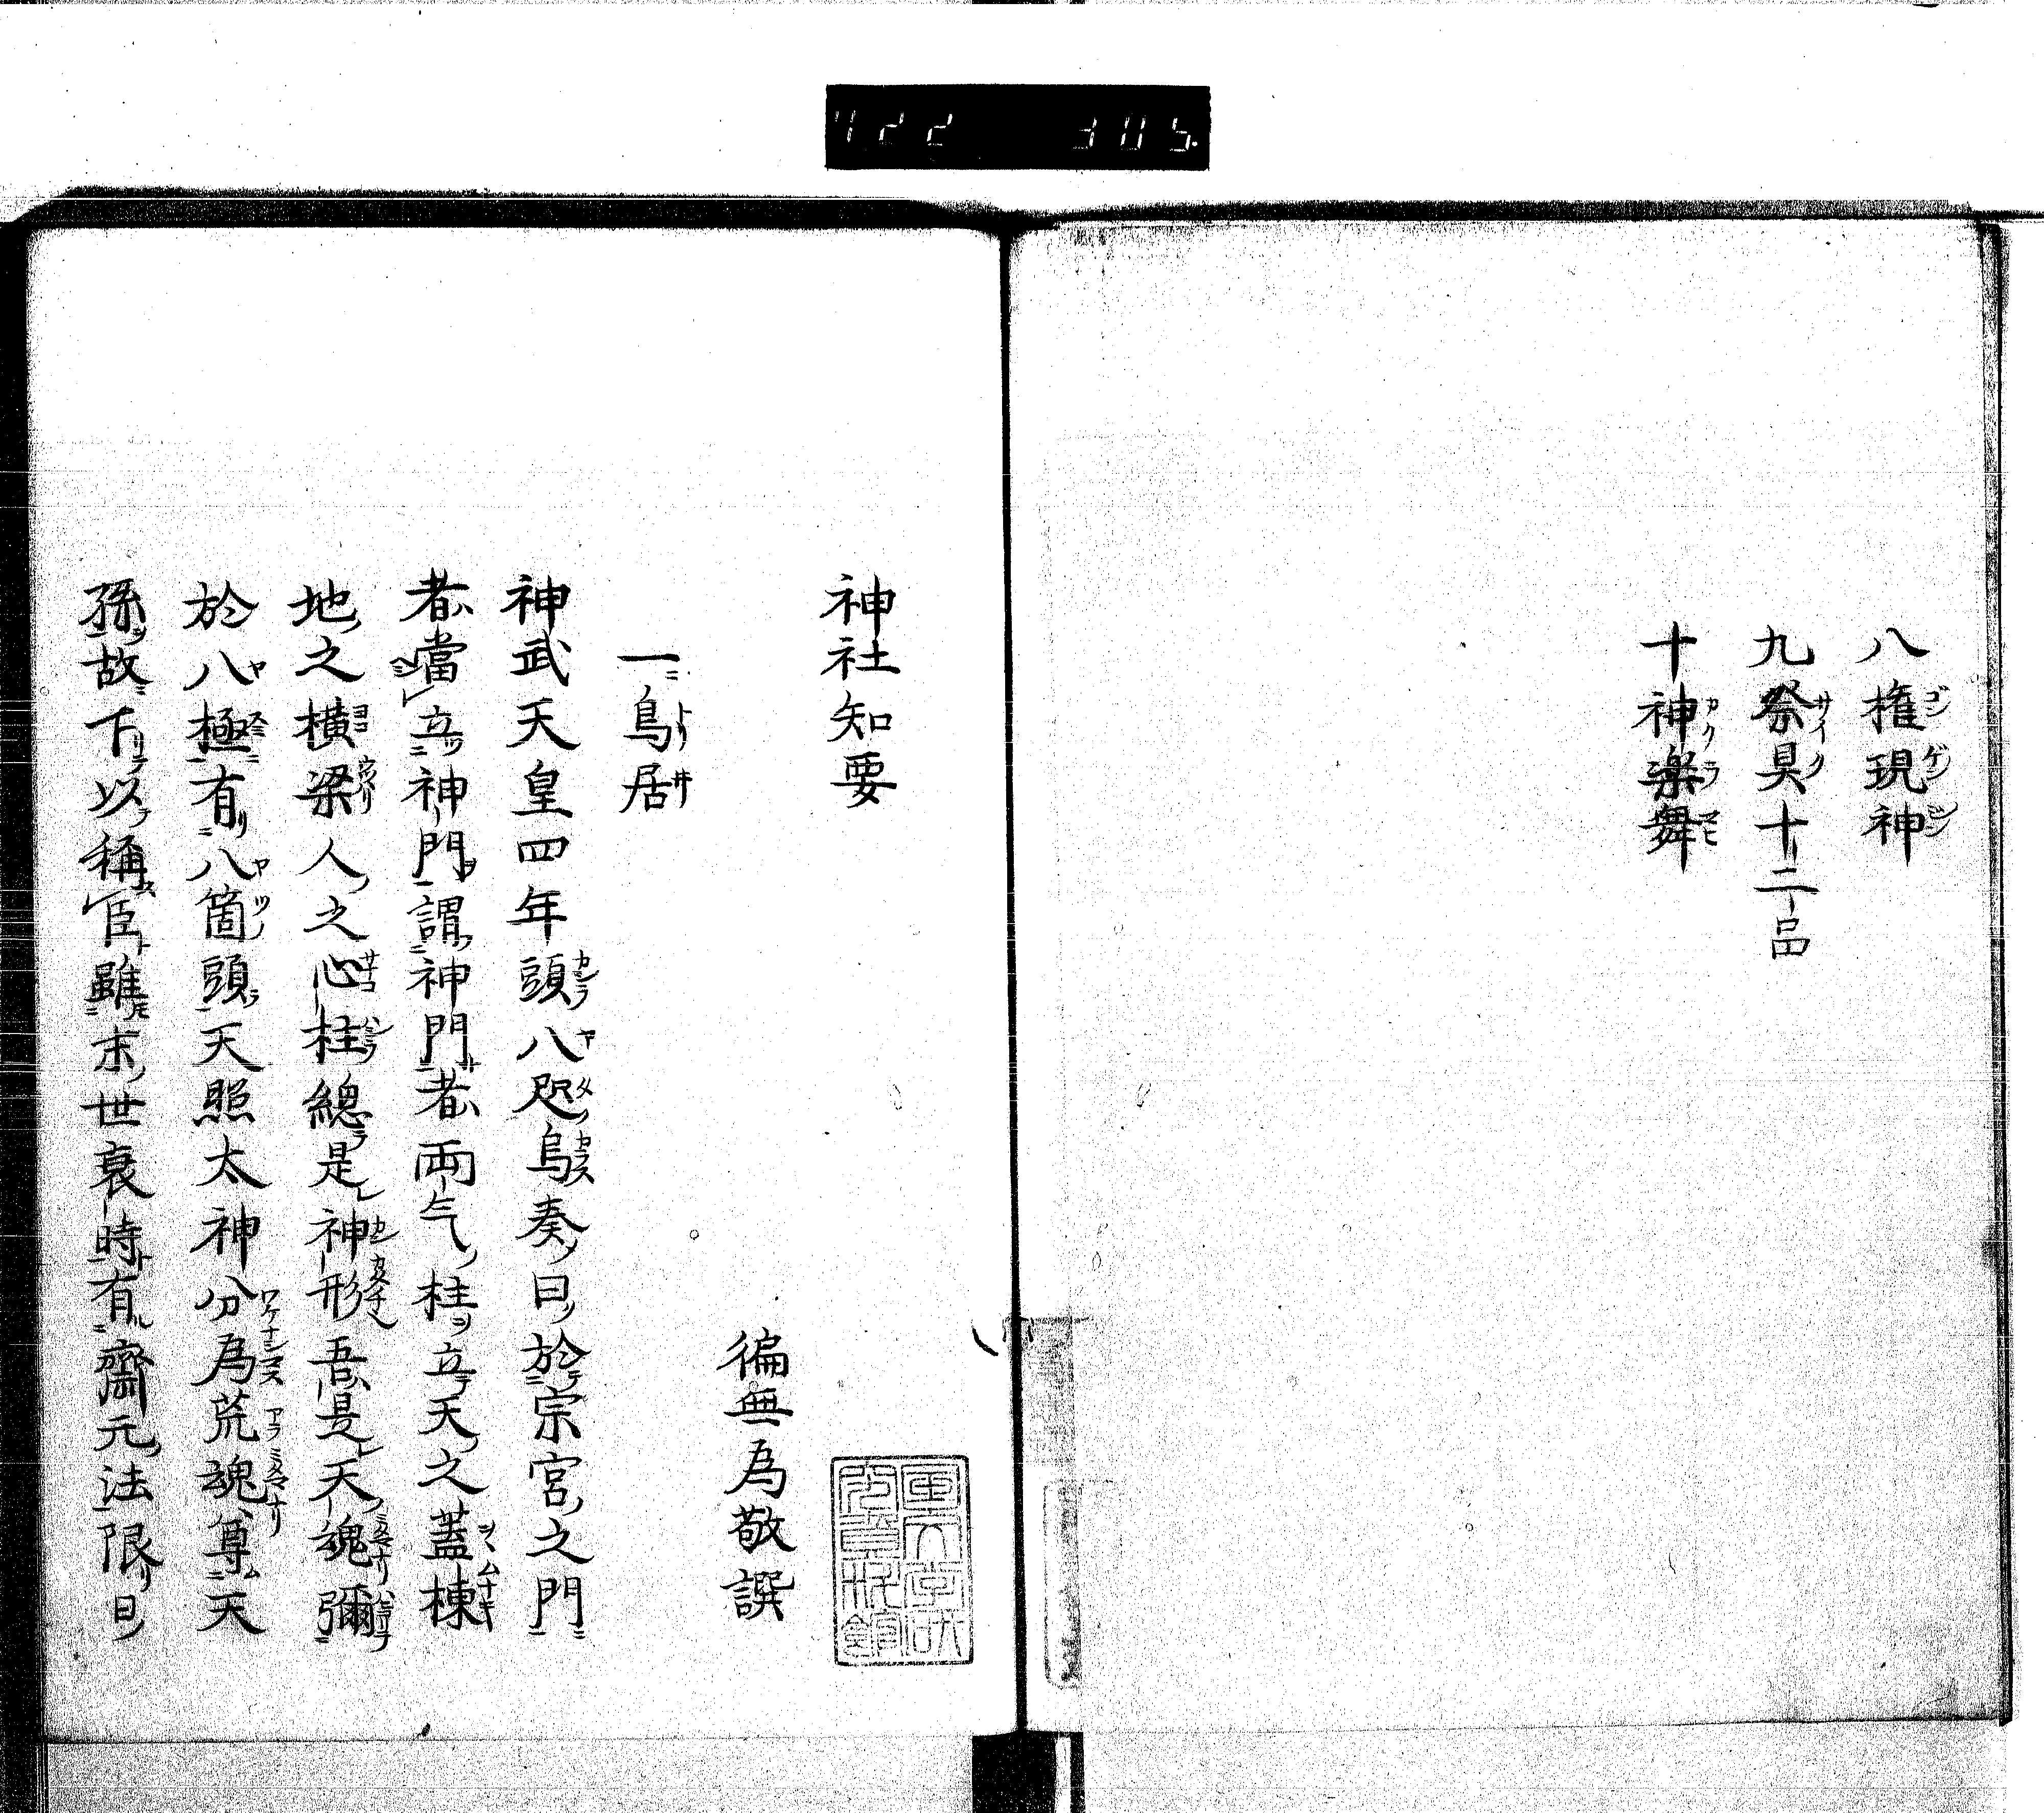 八権現神
九祭具十二品
十神楽舞
神社知要
徧無為敬譔
一鳥居
神武天皇四年頭八咫烏奏曰於宗宮之門
者當立神門謂神門者両气柱立天之蓋棟
地之横梁人之心柱總是神形吾是天魂彌
於八極有八箇頭天照太神分為荒魂尊天
孫故下以稱臣雖末世衰時有齋元法限日
722 305.